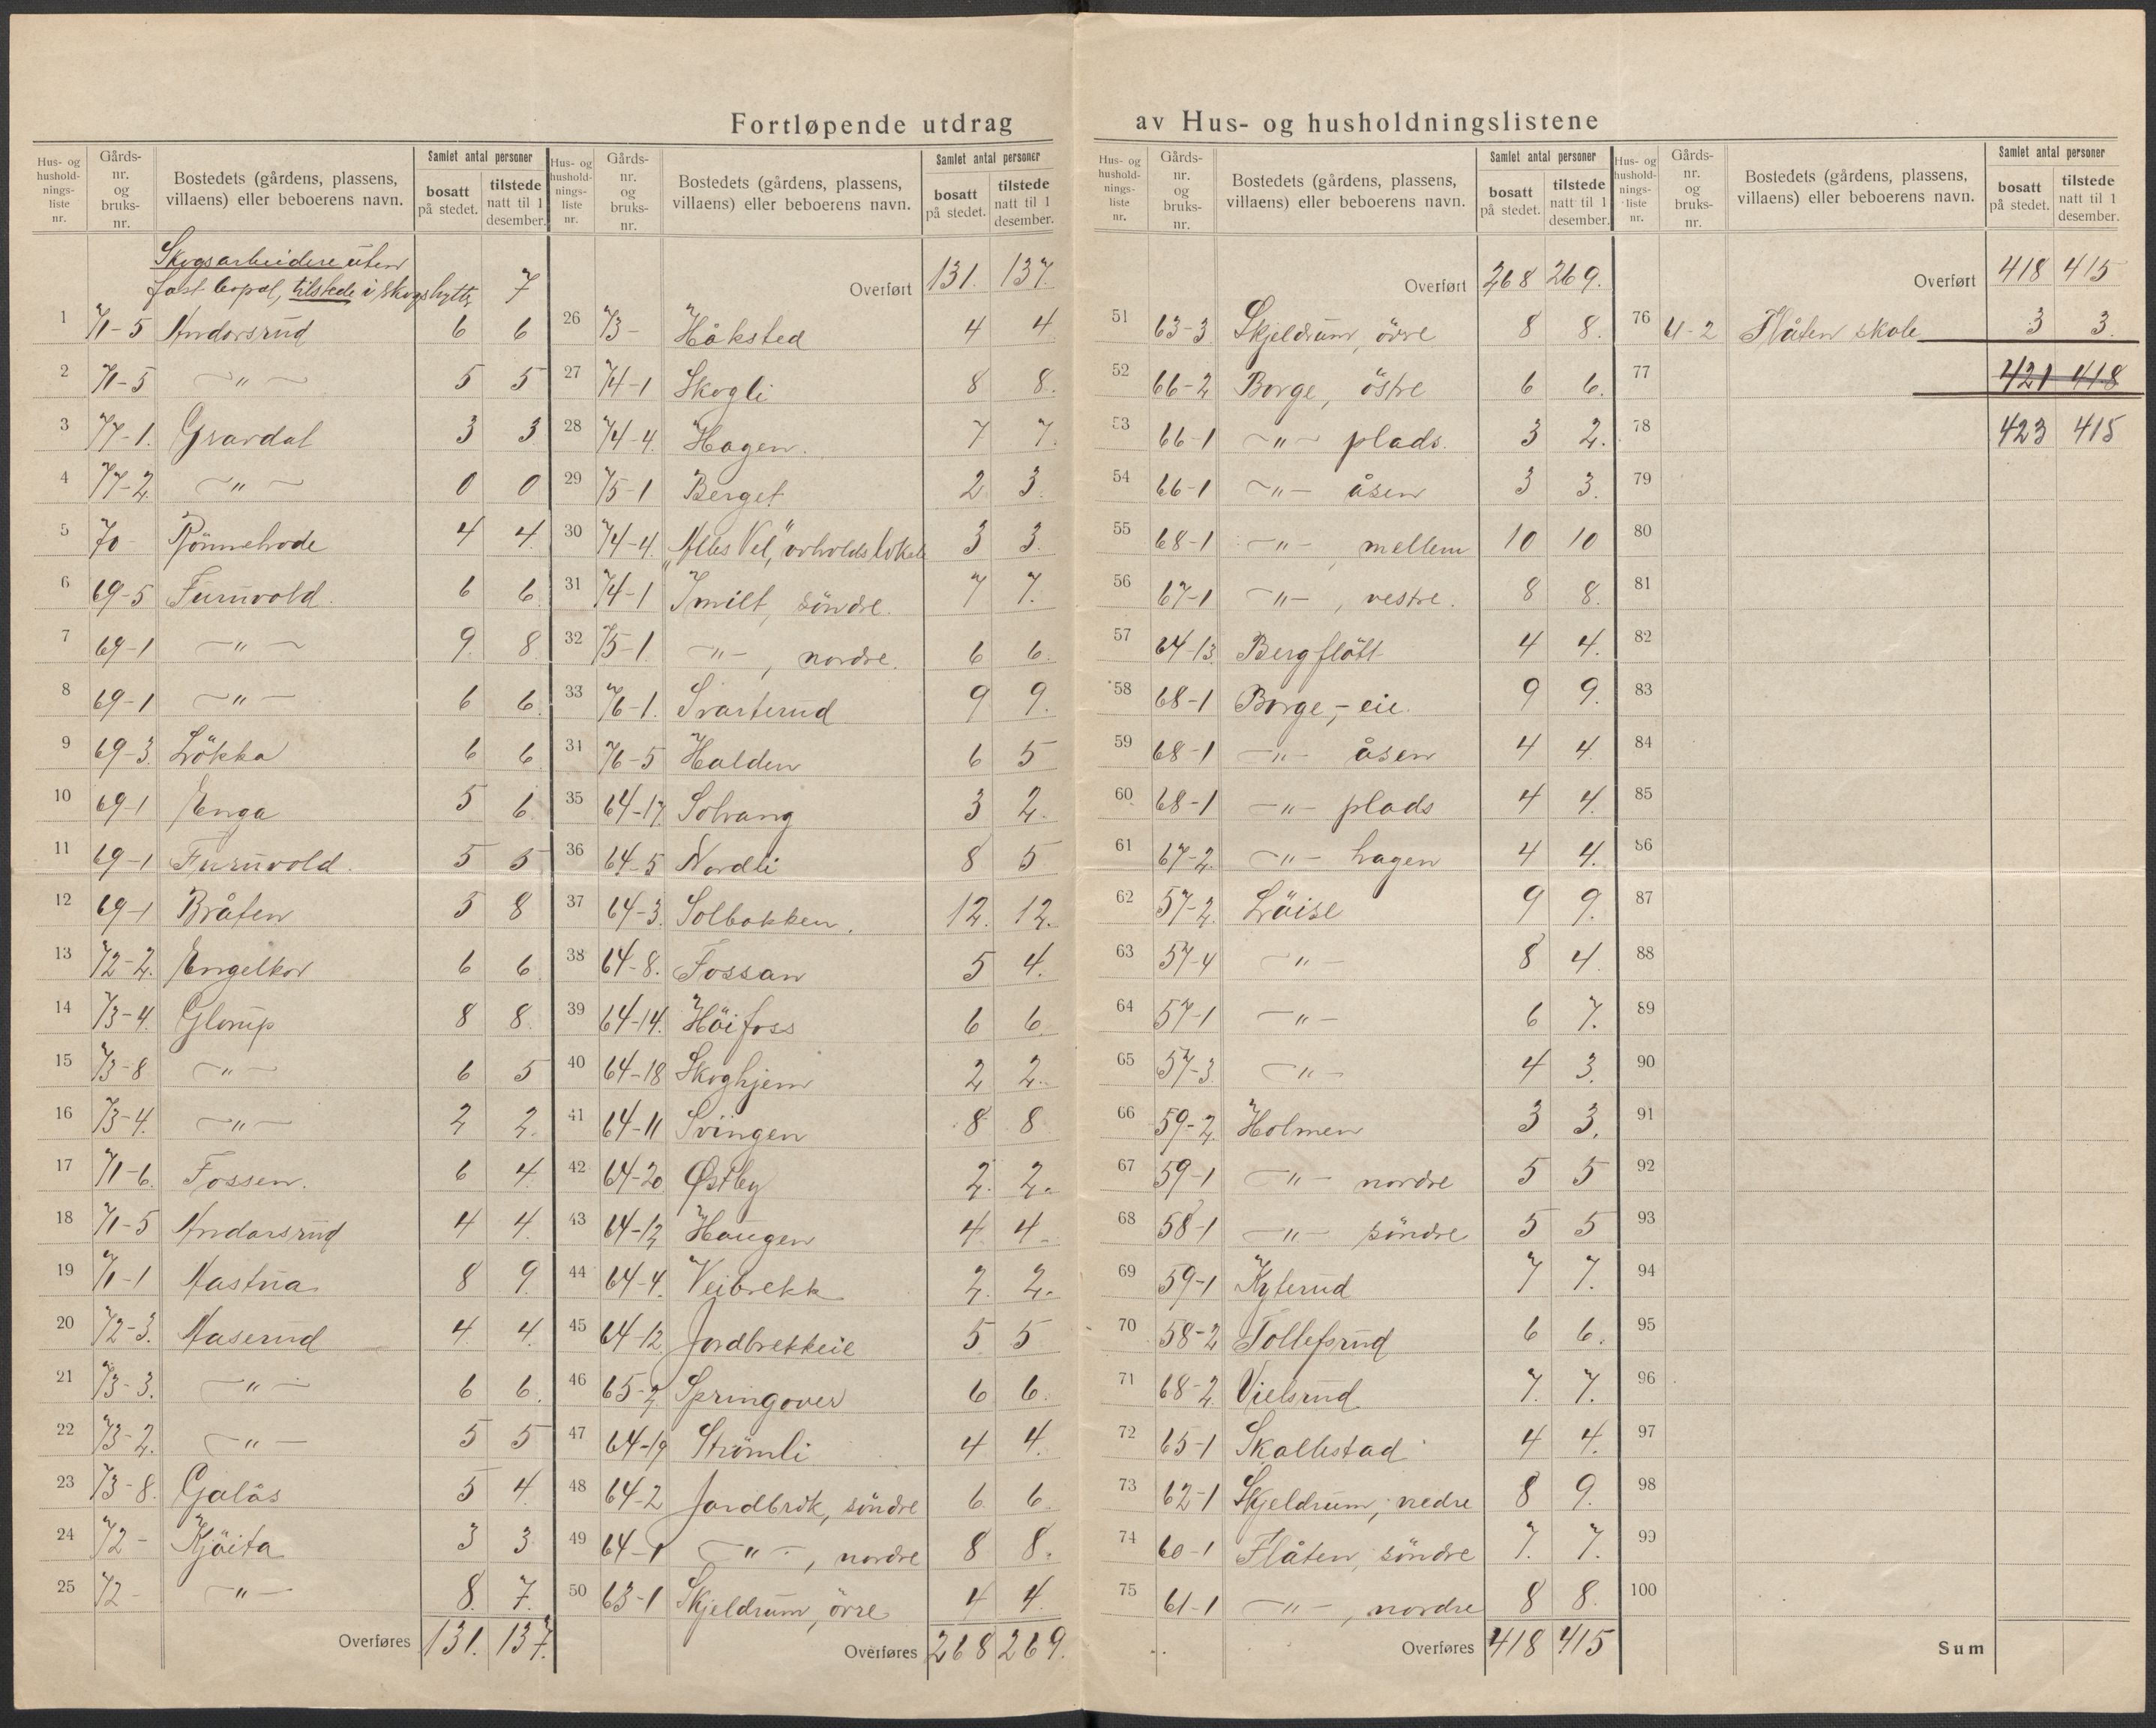 Fortløpende utdrag av Hus- og husholdningslistene
Hus- og husholdnings-liste nr.
Gårds-nr. og bruks-nr.
Bostedets (gårdens, plassens, villaens) eller beboerens navn.
Samlet antal personer
bosatt på stedet.
tilstede natt til 1 desember.
Skogsarbeidere uten
fast bopæl, tilstede i skogshytte 7
1 71-5 Andorsrud 6 6
2 71-5 -"- 5 5
3 77-1. Grardal 3 3
4 77-2 -"- 0 0
5 70 Rönnehode 4 4
6 69-5 Furuvold. 6 6
7 69-1 -"- 9 8
8 69-1 -"- 6 6.
9 69-3. Lökka 6 6
10 69-1 Enga 5 6
11 69-1 Furuvold. 5 5
12 69-1 Bråten 5 8
13 72-2. Engelkor 6 6
14 73-4. Glorup 8 8
15 73-8 -"- 6 5
16 73-4. -"- 2 2.
17 71-6. Fossen. 6 4
18 71-5 Andorsrud 4 4.
19 71-1 Aastua 8 9.
20 72-3. Aaserud 4 4.
21 73-3. -"- 6 6.
22 73-2. -"- 5 5
23 73-8. Galås 5 4.
24 72- Kjöita 3 3
25 72- -"- 8. 7.
Overføres 131. 137.
Hus- og husholdnings-liste nr.
Gårds-nr. og bruks-nr.
Bostedets (gårdens, plassens, villaens) eller beboerens navn.
Samlet antal personer
bosatt på stedet.
tilstede natt til 1 desember.
Overført 131. 137.
26 73- Håksted 4 4
27 74-1 Skogli 8 8.
28 74-4. Hagen. 7 7.
29 75-1 Berget 2 3.
30 74-4. "Alles Vel," avholdslokale 3 3
31 74-1 Smilt, söndre. 7 7.
32 75-1. -"-, nordre. 6 6.
33 76-1. Svarterud 9 9.
34 76-5 Halden 6 5
35 64-17. Solvang 3 2.
36 64-5 Nordli 8 5
37 64-3. Solbakken. 12. 12.
38 64-8. Fossan 5 4.
39 64-14. Höifoss 6 6
40 64-18 Skoghjem 2 2.
41 64-11 Svingen 8 8
42 64-20 Østby 2. 2.
43 64-12 Haugen 4 4.
44 64-4. Veibrekk 2. 2.
45 64-12. Jordbrekkeie 5 5
46 65-2 Springover 6 6.
47 64-19 Strömli 4 4.
48 64-2 Jordbrek, söndre 6 6
49 64-1 -"-, nordre 8 8.
50 63-1 Skjeldrum, övre 4 4.
Overføres 268 269.
Hus- og husholdnings-liste nr.
Gårds-nr. og bruks-nr.
Bostedets (gårdens, plassens, villaens) eller beboerens navn.
Samlet antal personer
bosatt på stedet.
tilstede natt til 1 desember.
Overført 268 269.
51 63-3 Skjeldrum, övre 8 8.
52 66-2 Borge, östre 6 6.
53 66-1 -"- plads. 3 2.
54 66-1 -"- åsen 3 3.
55 68-1 -"- mellem 10 10
56 67-1 -"-, vestre. 8 8.
57 64-13. Bergflött 4 4.
58 68-1 Borge,-eie. 9 9.
59 68-1 -"- åsen 4 4
60 68-1 -"- plads 4 4.
61 67-2. -"- hagen 4 4.
62 57-2. Löise 9 9.
63 57-4 -"- 8 4
64 57-1 -"- 6 7.
65 57-3 -"- 4 3.
66 59-2 Holmen 3 3.
67 59-1 -"- nordre 5 5
68 58-1 -"- söndre 5 5
69 59-1 Kyterud 7 7.
70 58-2 Tollefsrud 6 6.
71 68-2 Vielsrud 7. 7.
72 65-1 Skallestad 4 4.
73 62-1 Skjeldrum, nedre 8 9.
74 60-1 Flåten, söndre 7. 7.
75 61-1 -"-, nordre 8 8.
Overføres 418 415
Hus- og husholdnings-liste nr.
Gårds-nr. og bruks-nr.
Bostedets (gårdens, plassens, villaens) eller beboerens navn.
Samlet antal personer
bosatt på stedet.
tilstede natt til 1 desember.
Overført 418 415
76 61-2 Flåten skole 3 3.
77 421 418
78 423 415
79
80
81
82
83
84
85
86
87
88
89
90
91
92
93
94
95
96
97
98
99
100
Sum